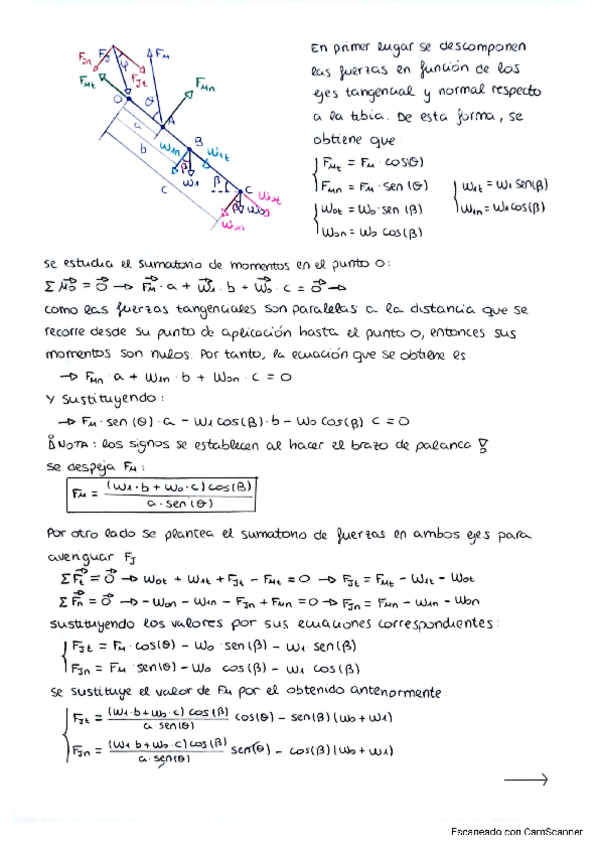 En primer lugar se descomponen
las fuerzas en función de los
ejes tangencial y normal respecto
a la tibia. De esta forma, se
obtiene que
FMt = FM · cos(θ)
FMn = FM · sen (θ)
W1t = W1 sen(β)
W1n = W1 cos(β)
W0t = W0 · sen (β)
W0n = W0 cos(β)
FJn FJ φ FJt FM
FMt FMn
O θ A
a W1n B W1t
b β W1
c β C W0t
β W0
W0n
se estudia el sumatorio de momentos en el punto O:
Σ M⃗0 = 0⃗ → F⃗M · a + W⃗1 · b + W⃗0 · c = 0⃗ →
como las fuerzas tangenciales son paralelas a la distancia que se
recorre desde su punto de aplicación hasta el punto O, entonces sus
momentos son nulos. Por tanto, la ecuación que se obtiene es
→ FMn · a + W1n · b + W0n · c = 0
Y sustituyendo:
→ FM · sen (θ) · a - W1 cos(β) · b - W0 cos(β) c = 0
NOTA: los signos se establecen al hacer el brazo de palanca
se despeja FM:
FM = (W1 · b + W0 · c) cos(β) / a · sen (θ)
Por otro lado se plantea el sumatorio de fuerzas en ambos ejes para
averiguar FJ
Σ F⃗t = 0⃗ → W0t + W1t + FJt - FMt = 0 → FJt = FMt - W1t - W0t
Σ F⃗n = 0⃗ → - W0n - W1n - FJn + FMn = 0 → FJn = FMn - W1n - W0n
sustituyendo los valores por sus ecuaciones correspondientes:
FJt = FM · cos(θ) - W0 · sen(β) - W1 · sen(β)
FJn = FM · sen(θ) - W0 cos(β) - W1 cos(β)
se sustituye el valor de FM por el obtenido anteriormente
FJt = (W1 · b + W0 · c) cos(β) / a · sen(θ) cos(θ) - sen(β) (W0 + W1)
FJn = (W1 b + W0 · c) cos(β) / a · sen(θ) sen(θ) - cos(β) (W0 + W1)
Escaneado con CamScanner